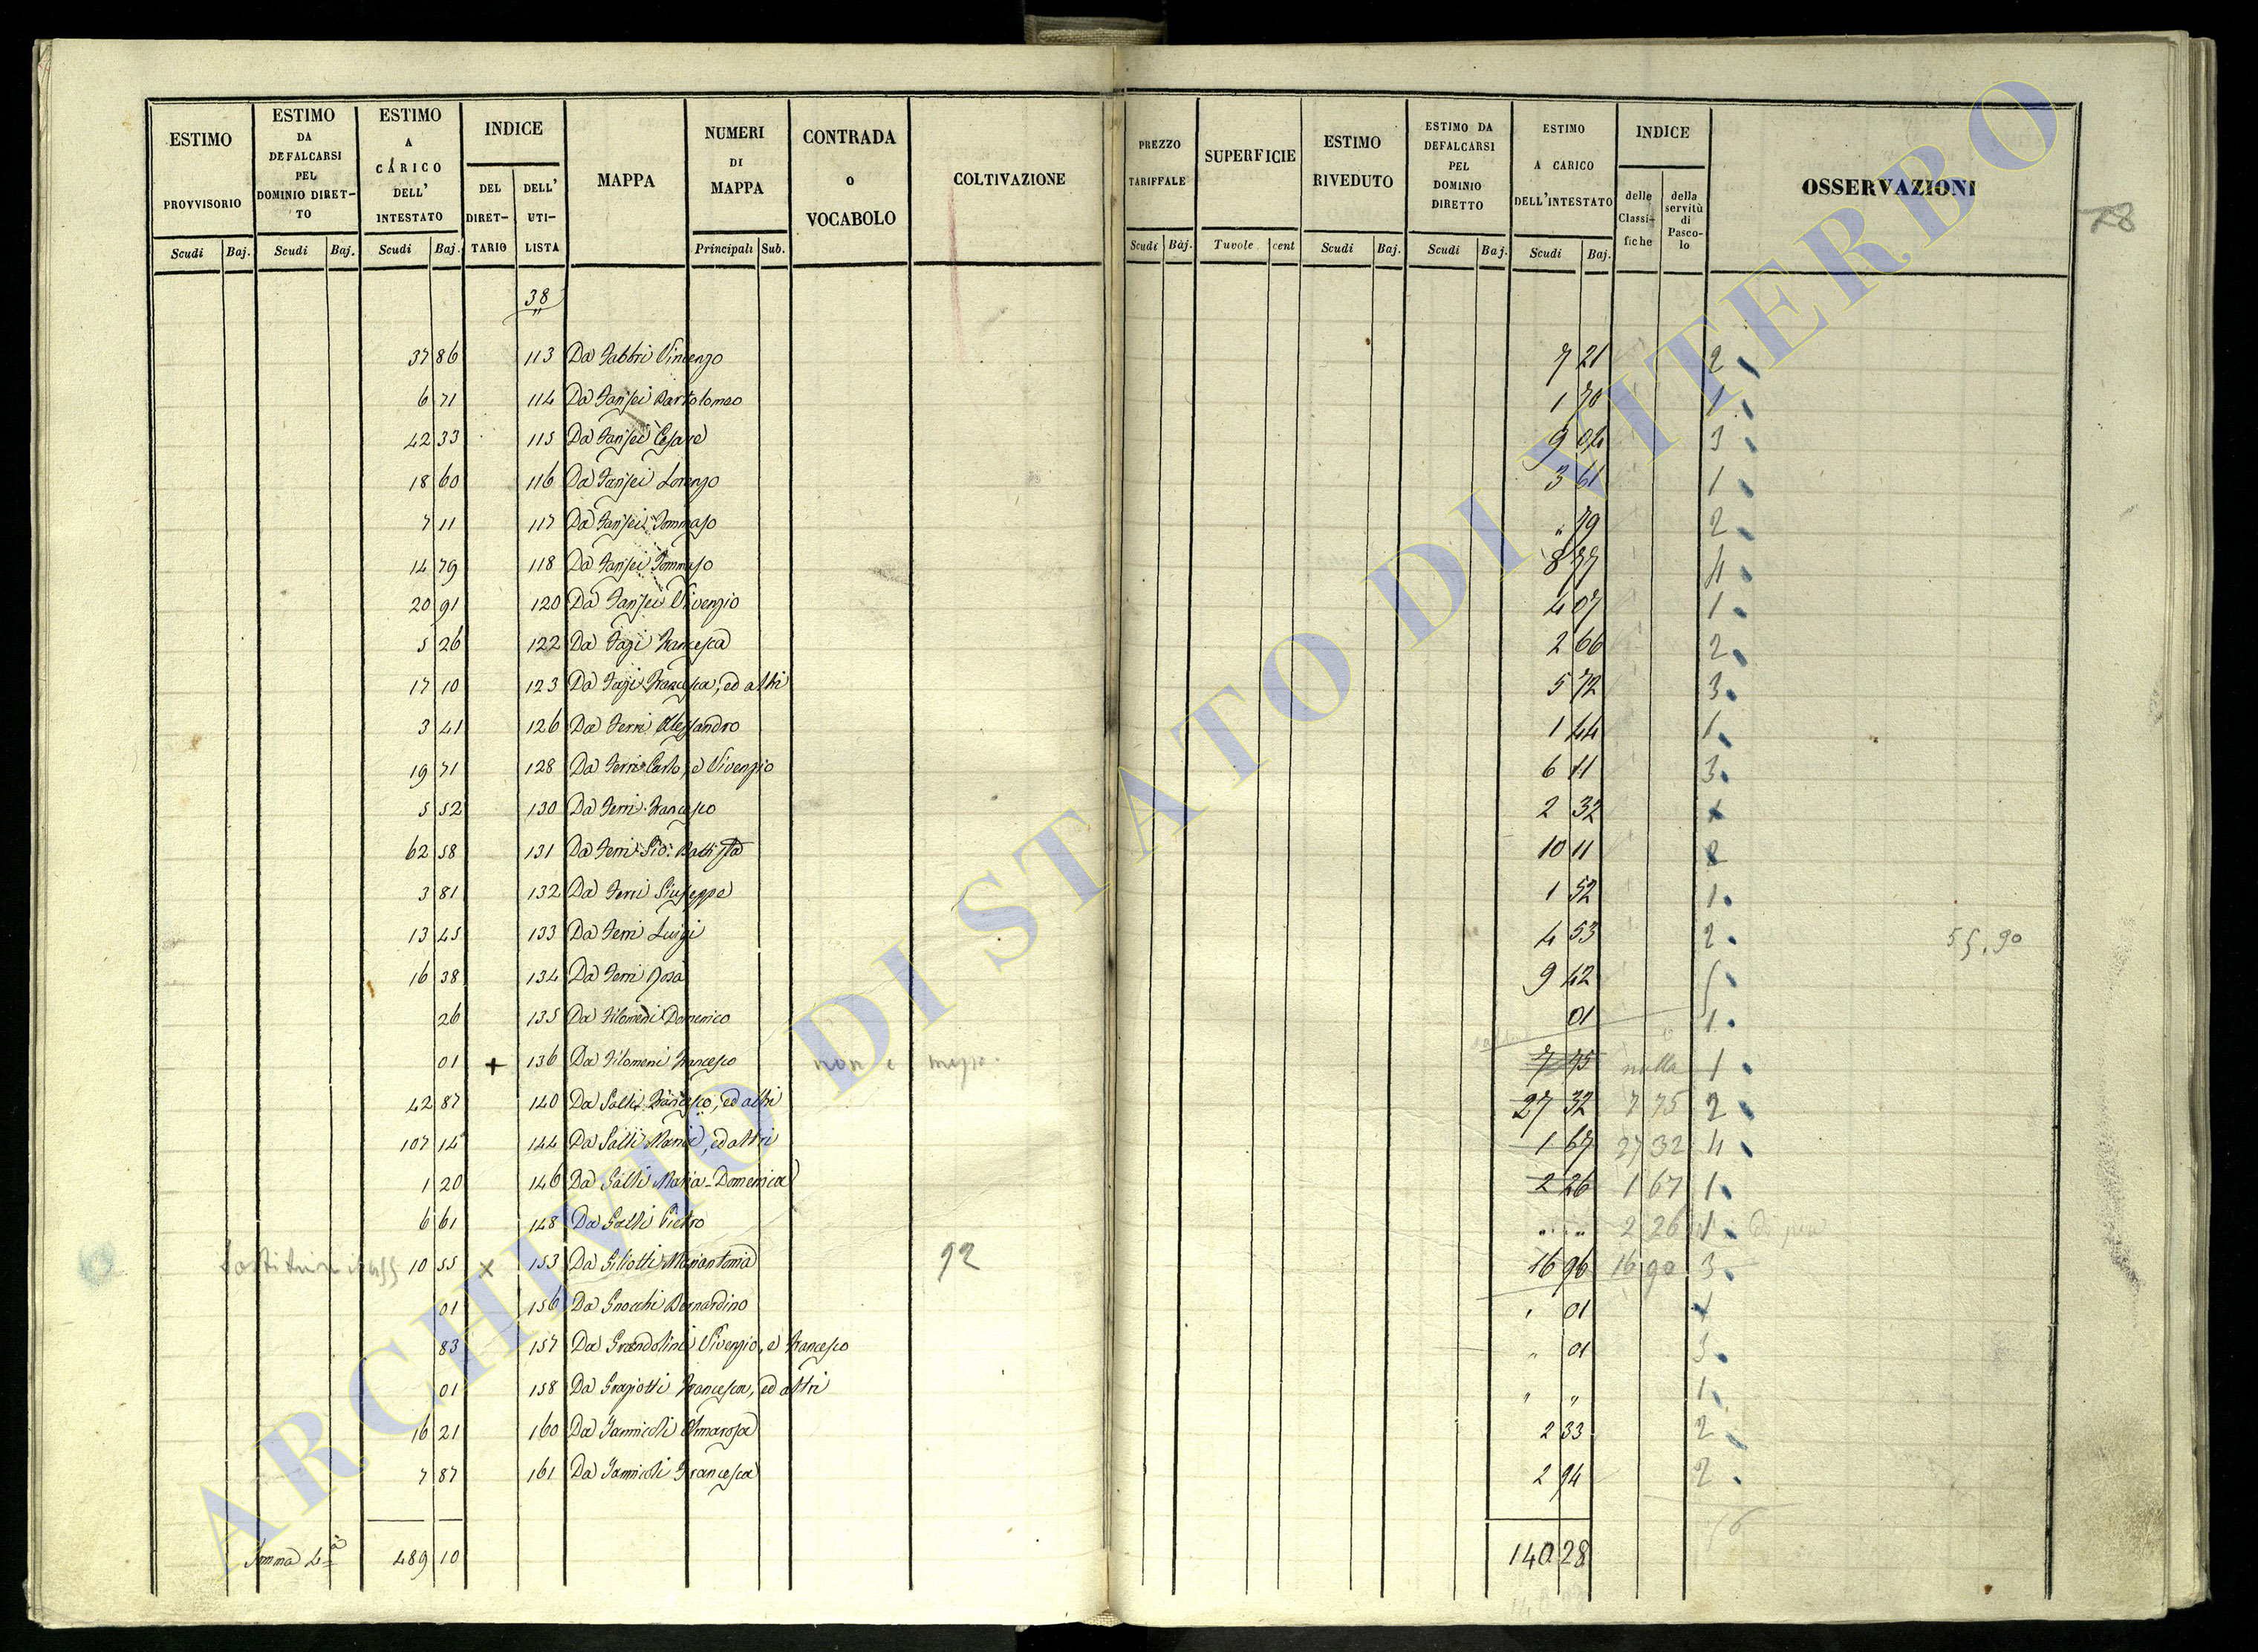 ESTIMO PROVVISORIO Scudi Baj.
ESTIMO DA DEFALCARSI PEL DOMINIO DIRET-TO Scudi Baj.
ESTIMO A CARICO DELL' INTESTATO Scudi Baj.
INDICE DEL DIRET-TARIO DELL' UTI-LISTA
MAPPA
NUMERI DI MAPPA Principali Sub.
CONTRADA o VOCABOLO
COLTIVAZIONE
PREZZO TARIFFALE Scudi Baj.
SUPERFICIE Tavole cent
ESTIMO RIVEDUTO Scudi Baj.
ESTIMO DA DEFALCARSI PEL DOMINIO DIRETTO Scudi Baj.
ESTIMO A CARICO DELL'INTESTATO Scudi Baj.
INDICE delle Classi-fiche della servitù di Pasco-lo
OSSERVAZIONI
78
38
37 86 113 Da Fabbri Vincenzo 7 21 2
6 71 114 Da Fansei Bartolomeo 1 70 1
42 33 115 Da Fansei Cesare 9 04 3
18 60 116 Da Fansei Lorenzo 3 61 1
7 11 117 Da Fansei Tommaso " 79 2
14 79 118 Da Fansei Tommaso 8 37 4
20 91 120 Da Fansei Vivenzio 4 07 1
5 26 122 Da Fazi Francesca 2 66 2
17 10 123 Da Fazi Francesca, ed altri 5 72 3
3 41 126 Da Ferri Alessandro 1 44 1
19 71 128 Da Ferri Carlo, e Vivenzio 6 11 3
5 52 130 Da Ferri Francesco 2 32
62 58 131 Da Ferri Gio: Battista 10 11 2
3 81 132 Da Ferri Giuseppe 1 52 1
13 45 133 Da Ferri Luigi 4 53 2 55.90
16 38 134 Da Ferri Rosa 9 42
26 135 Da Filomeni Domenico 01 1
01 + 136 Da Filomeni Francesco non è 7 75 nulla 1
42 87 140 Da Galli Francesco, ed altri 27 32 7 75 2
107 14 144 Da Galli Maria, ed altri 1 67 27 32 4
1 20 146 Da Galli Maria-Domenica 2 26 1 67 1
6 61 148 Da Galli Pietro " " 2 26 1 di più
10 55 x 153 Da Giliotti Mariantonia 92 16 90 16 90 3
01 156 Da Gnocchi Bernardino " 01
83 157 Da Grandolini Vivenzio, e Francesco " 01 3
01 158 Da Graziotti Francesca, ed altri " " 1
16 21 160 Da Jannicoli Annarosa 2 33 2
7 87 161 Da Jannicoli Francesca 2 94 2
Somma 489 10 140 28
ARCHIVIO DI STATO DI VITERBO